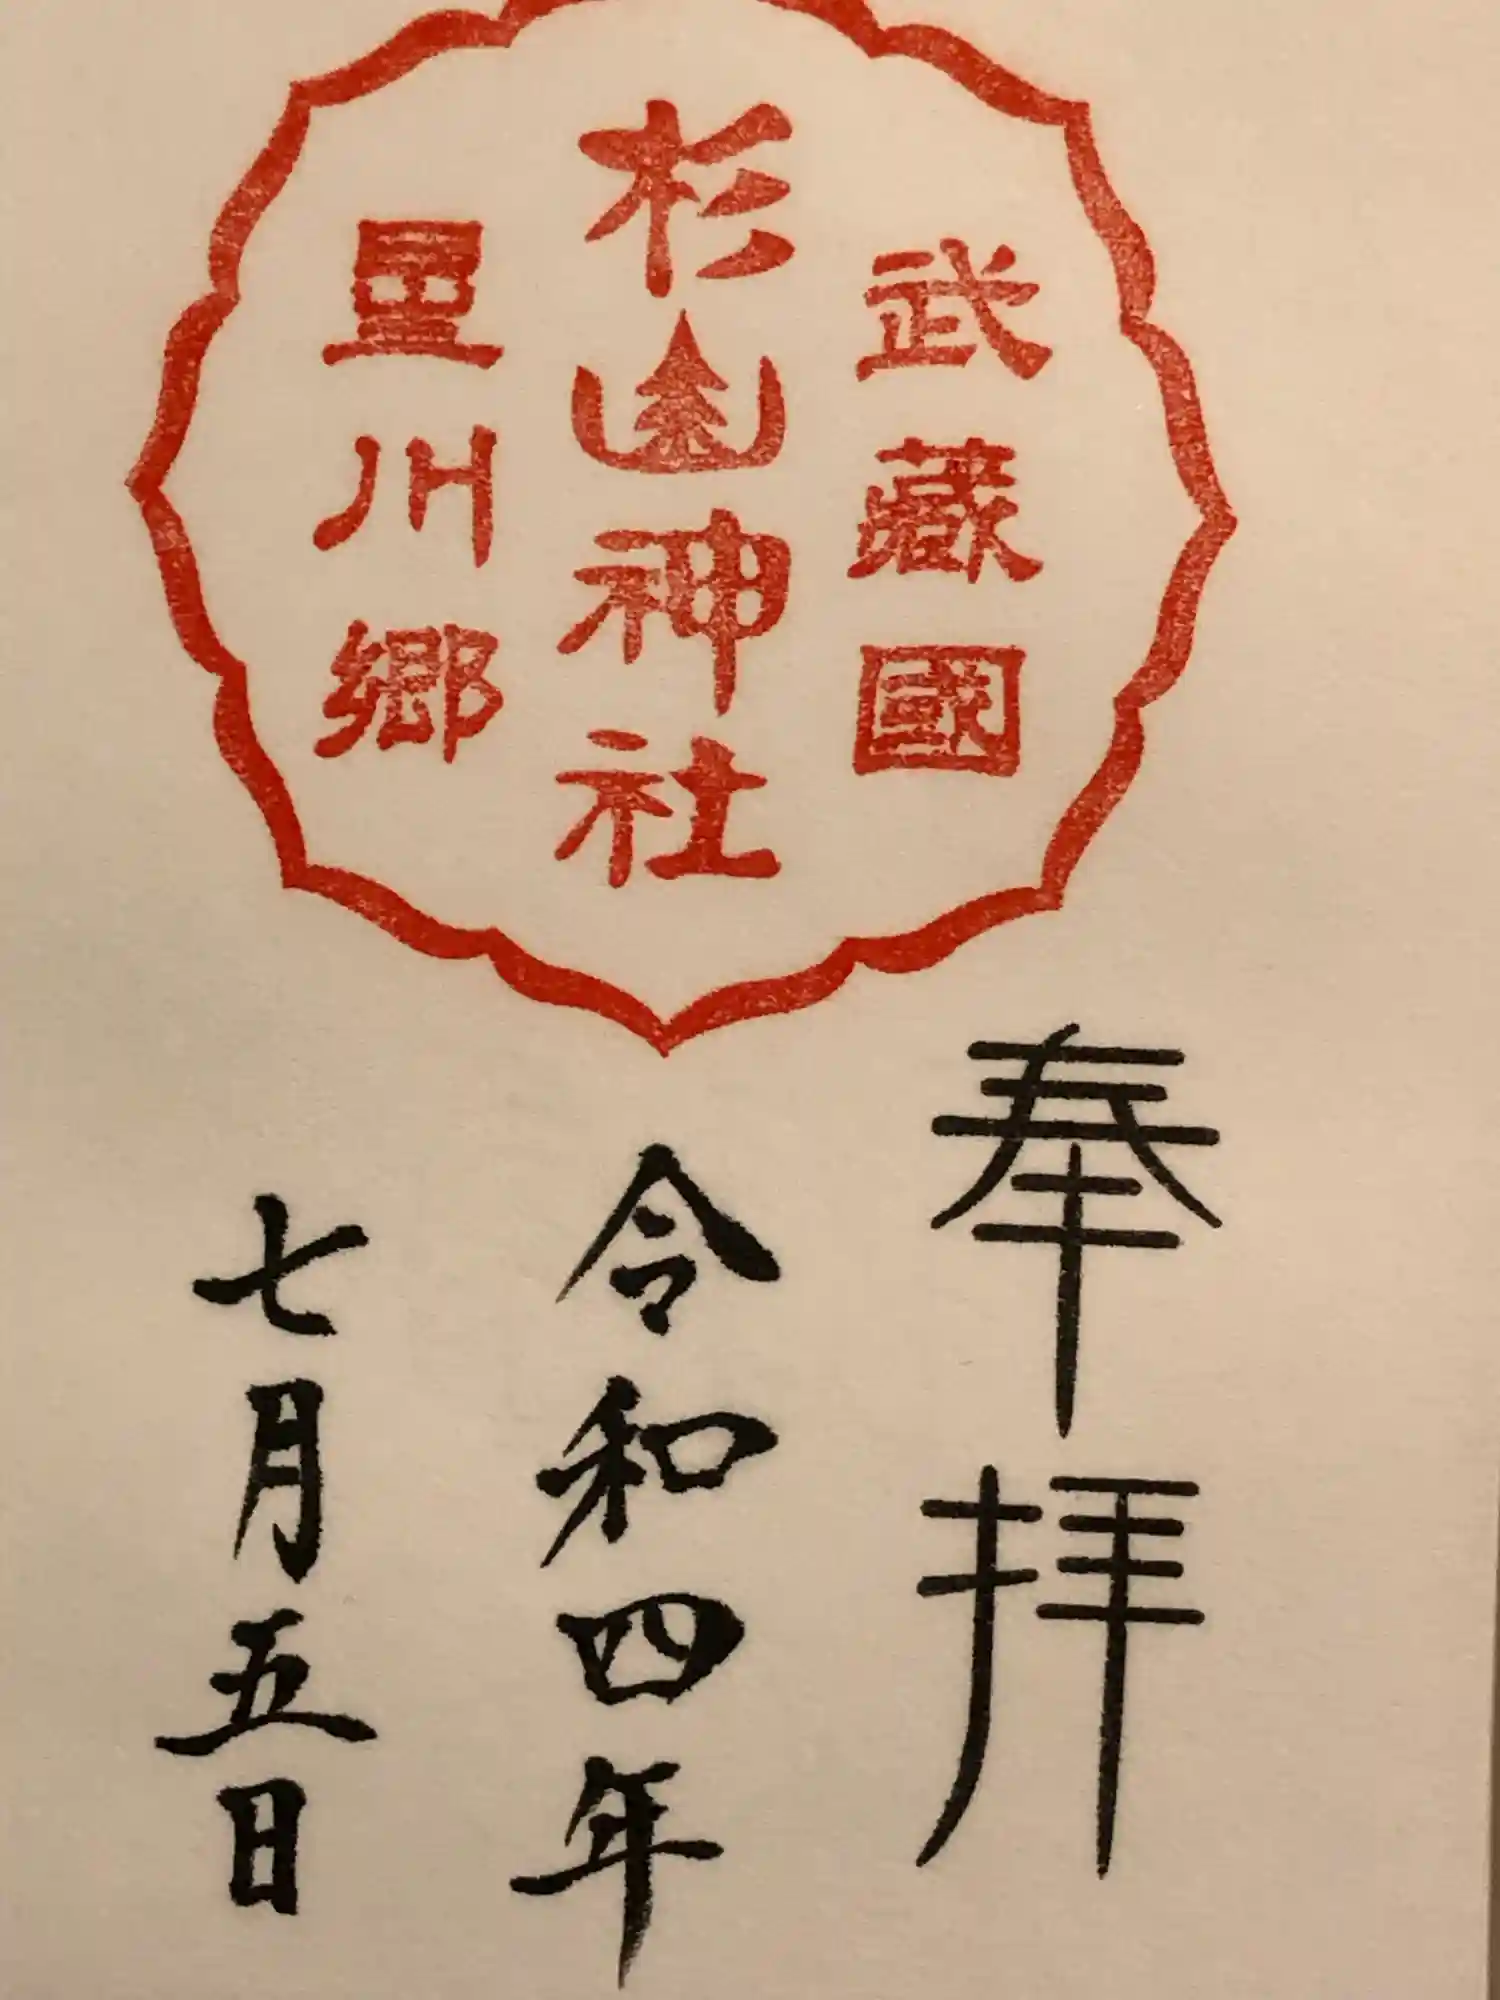 武藏國
杉山神社
星川郷
奉拝
令和四年
七月五日